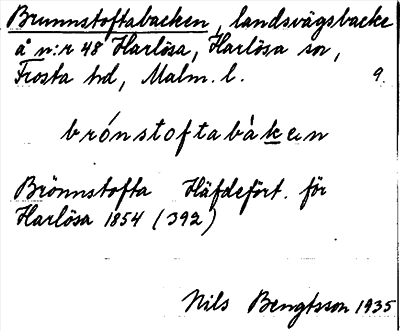 Brunnstoftabacken, landsvägsbacke
å n:r 48 Harlösa, Harlösa sn,
Frosta hd, Malm. l. 9.
brónstoftabàken
Brönnstofta Häfdefört. för
Harlösa 1854 (392)
Nils Bengtsson 1935